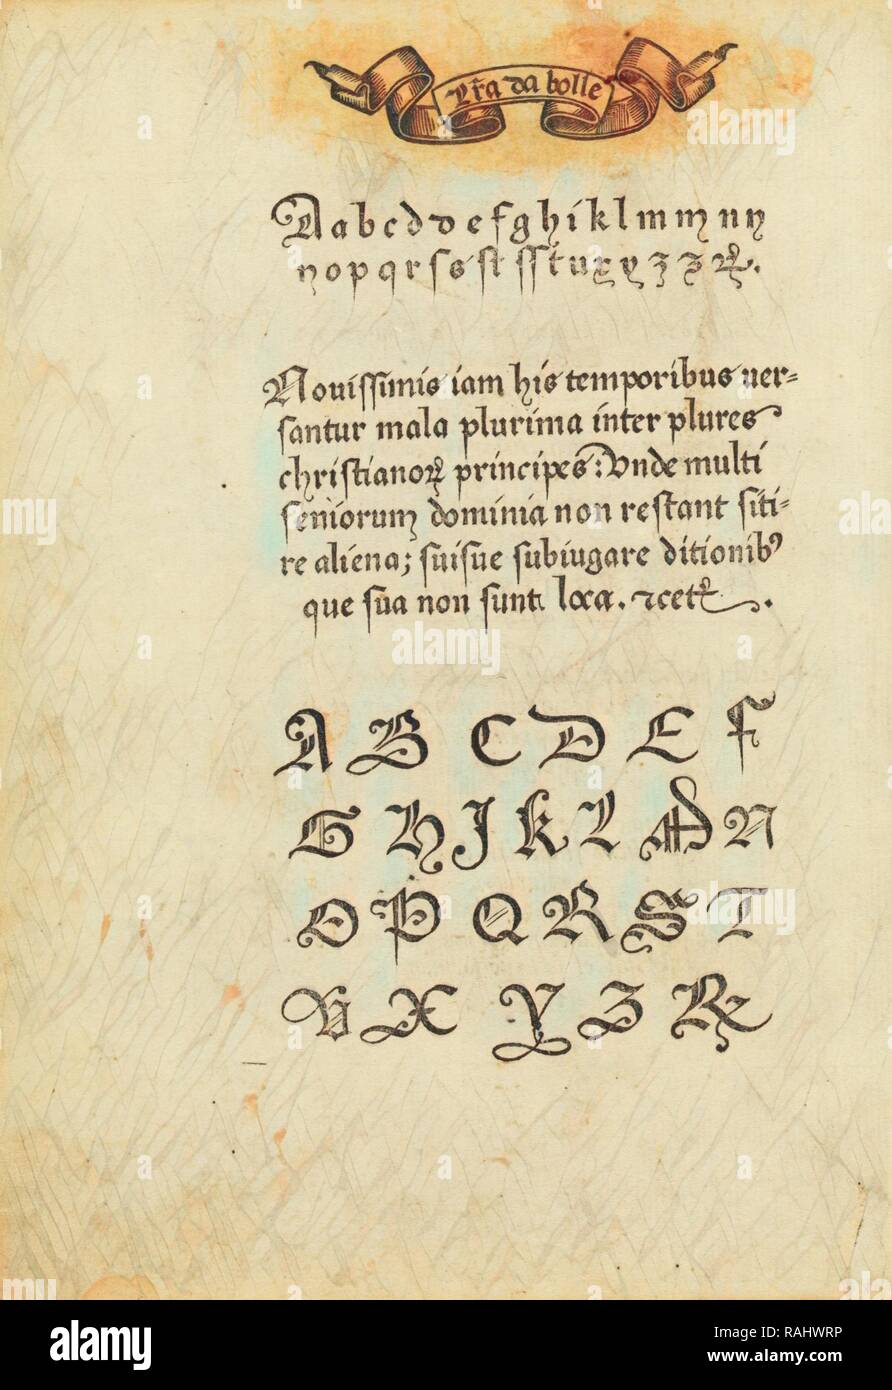 Lr̃a da bolle
A a b c d d e f g h i k l m m n n
n o p q r ſ s ſt ſſ t u x y z z Ꝝ.
Nouiſſimis iam his temporibus uer=
ſantur mala plurima inter plures
chriſtianoꝝ principes: Vnde multi
ſeniorum dominia non reſtant ſiti=
re aliena; ſuiſue ſubiugare ditionibꝰ
que ſua non ſunt loca. ⁊cetꝝ.
A B C D E F
G H J K L M N
O P Q R S T
V X Y Z Ꝝ
alamy
Image ID: RAHWRP
www.alamy.com